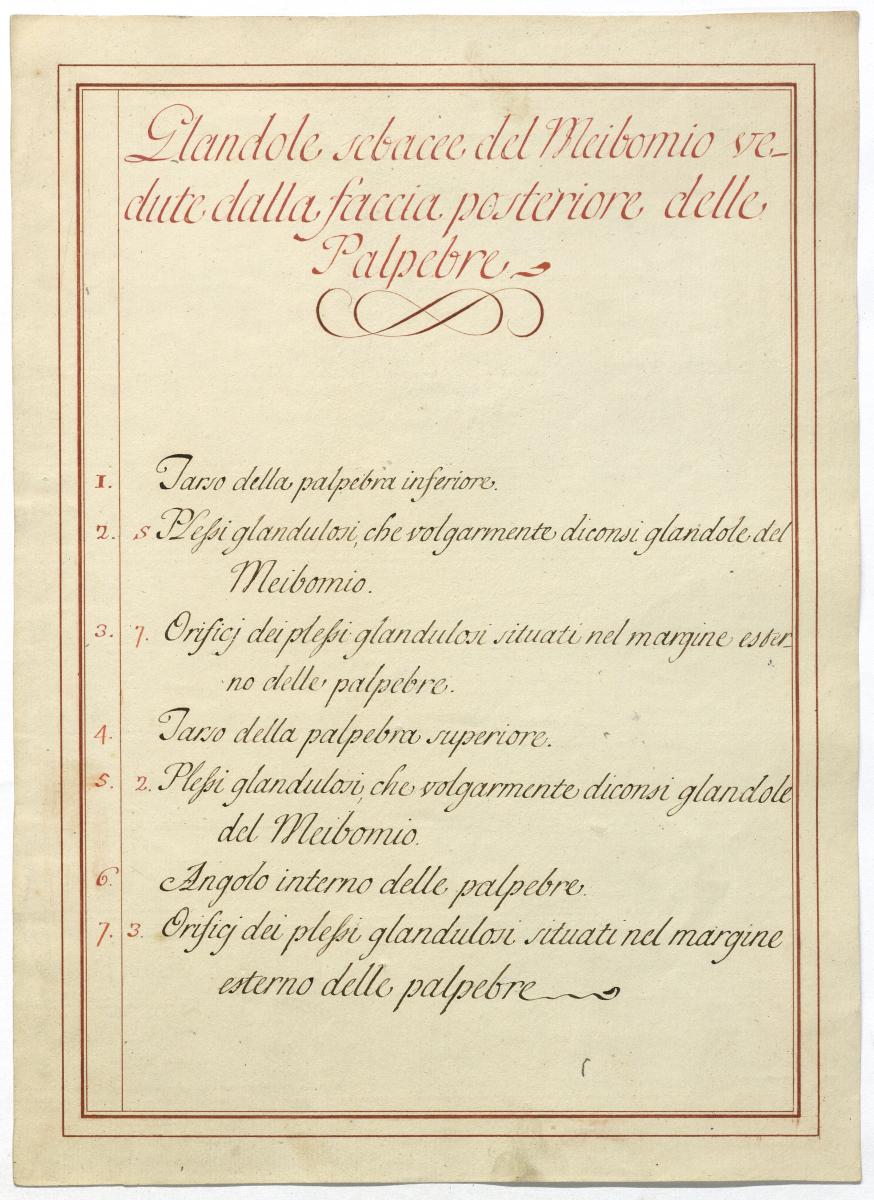 Glandole sebacee del Meibomio ve-
dute dalla faccia posteriore delle
Palpebre
1. Tarso della palpebra inferiore.
2. 5 Plessi glandulosi, che volgarmente diconsi glandole del
Meibomio.
3. 7. Orificj dei plessi glandulosi situati nel margine ester-
no delle palpebre.
4. Tarso della palpebra superiore.
5. 2. Plessi glandulosi, che volgarmente diconsi glandole
del Meibomio.
6. Angolo interno delle palpebre.
7. 3. Orificj dei plessi glandulosi situati nel margine
esterno delle palpebre